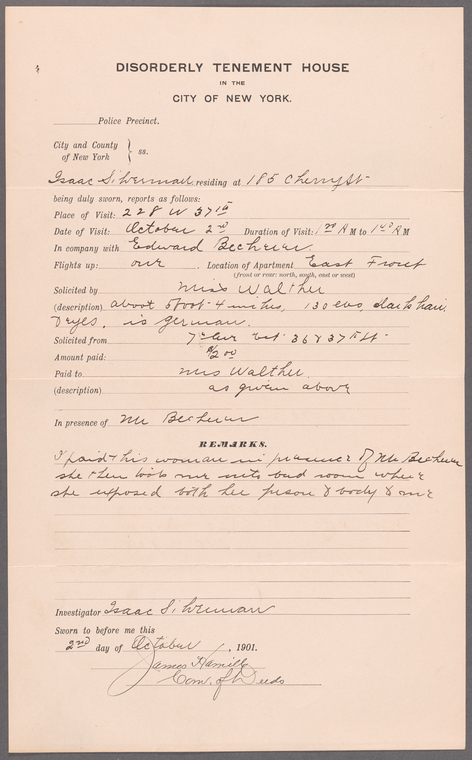 DISORDERLY TENEMENT HOUSE
IN THE
CITY OF NEW YORK.
Police Precinct.
City and County
of New York } ss.
Isaac Silverman residing at 185 Cherry St
being duly sworn, reports as follows:
Place of Visit: 228 W 37th
Date of Visit: October 2nd Duration of Visit: AM to AM
In company with Edward Becherer.
Flights up: one Location of Apartment East Front
(front or rear: north, south, east or west)
Solicited by Miss Walther
(description) about 5 foot 4 inches, 130 lbs, dark hair
& eyes, is german.
Solicited from 7th Ave bet 36 & 37th St
Amount paid: $2 00
Paid to Miss Walther.
(description) as given above
In presence of Mr Becherer
REMARKS.
I paid this woman in presence of Mr Becherer
she then took me into bed room where
she exposed both her person & body to me
Investigator Isaac Silverman
Sworn to before me this
2nd day of October , 1901.
James Hamill
Com. of Deeds